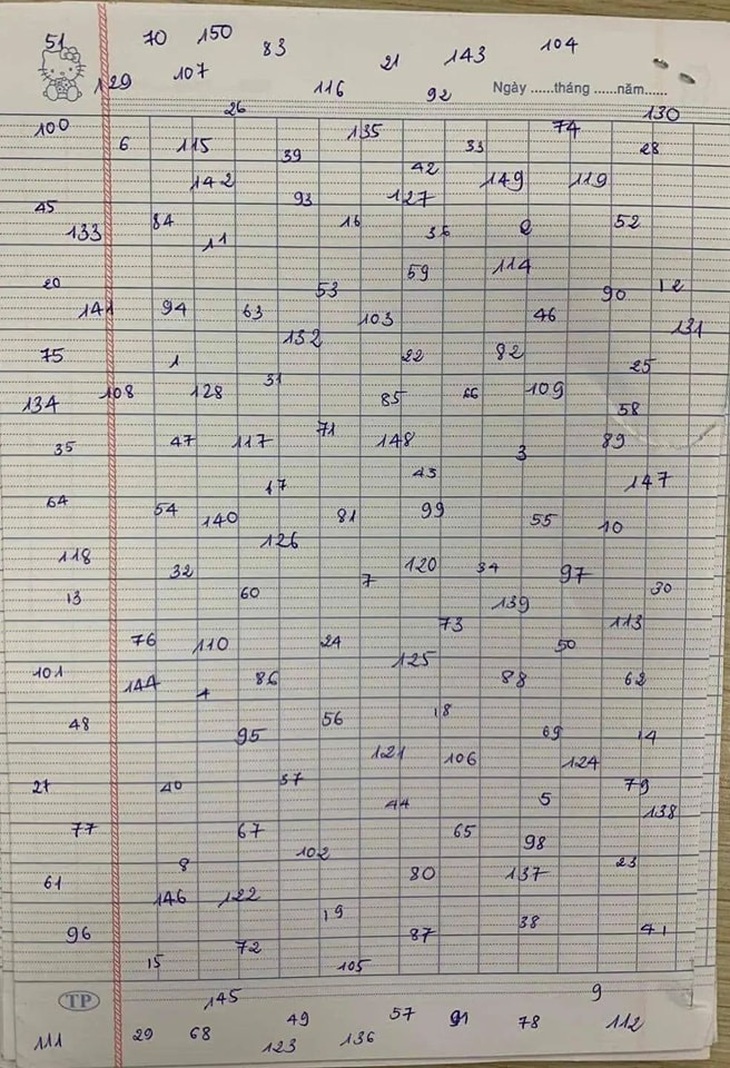 51 70 150 83 21 143 104
129 107 116 92 Ngày ......tháng ......năm......
26 130
100 6 115 39 135 33 74 28
142 93 42 127 149 119
45 133 84 11 16 36 2 52
20 53 59 114 90 12
141 94 63 132 103 46 131
75 1 22 82 25
134 108 128 31 85 66 109 58
35 47 117 71 148 3 89
17 43 147
64 54 140 81 99 55 10
118 126
13 32 60 7 120 34 97 30
139
76 110 24 73 50 113
101 144 86 125 88 62
48 95 56 18 69 14
121 106 124
27 40 37 44 5 79 138
77 67 65 98
8 102 23
61 146 122 80 137
96 72 19 87 38 41
15 105
TP 145 9
111 29 68 49 57 91 78 112
123 136